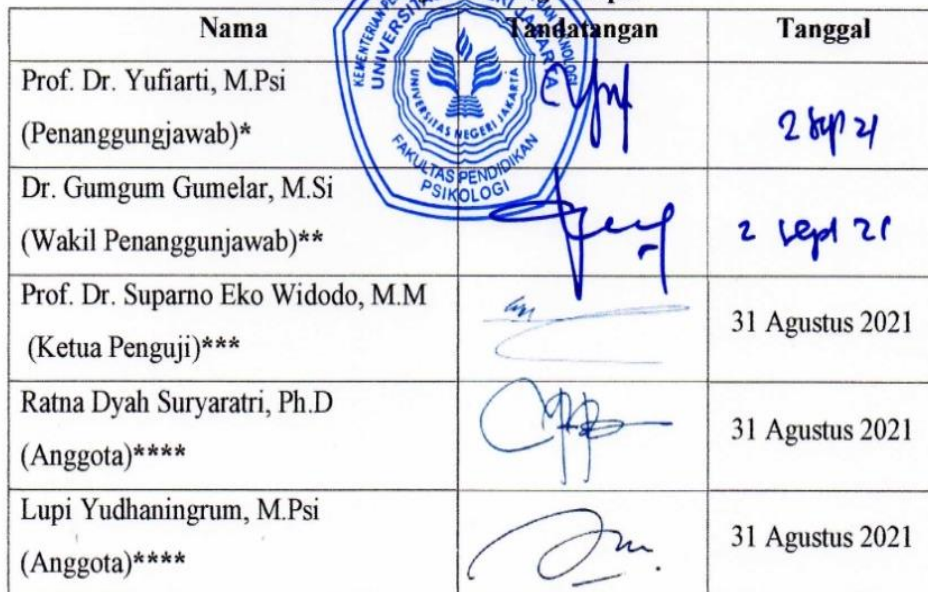 Nama Tandatangan Tanggal
Prof. Dr. Yufiarti, M.Psi
(Penanggungjawab)*
2 Sept 21
Dr. Gumgum Gumelar, M.Si
(Wakil Penanggunjawab)**
2 sept 21
Prof. Dr. Suparno Eko Widodo, M.M
(Ketua Penguji)***
31 Agustus 2021
Ratna Dyah Suryaratri, Ph.D
(Anggota)****
31 Agustus 2021
Lupi Yudhaningrum, M.Psi
(Anggota)****
31 Agustus 2021
UNIVERSITAS NEGERI JAKARTA
UNIVERSITAS NEGERI JAKARTA
FAKULTAS PENDIDIKAN
PSIKOLOGI